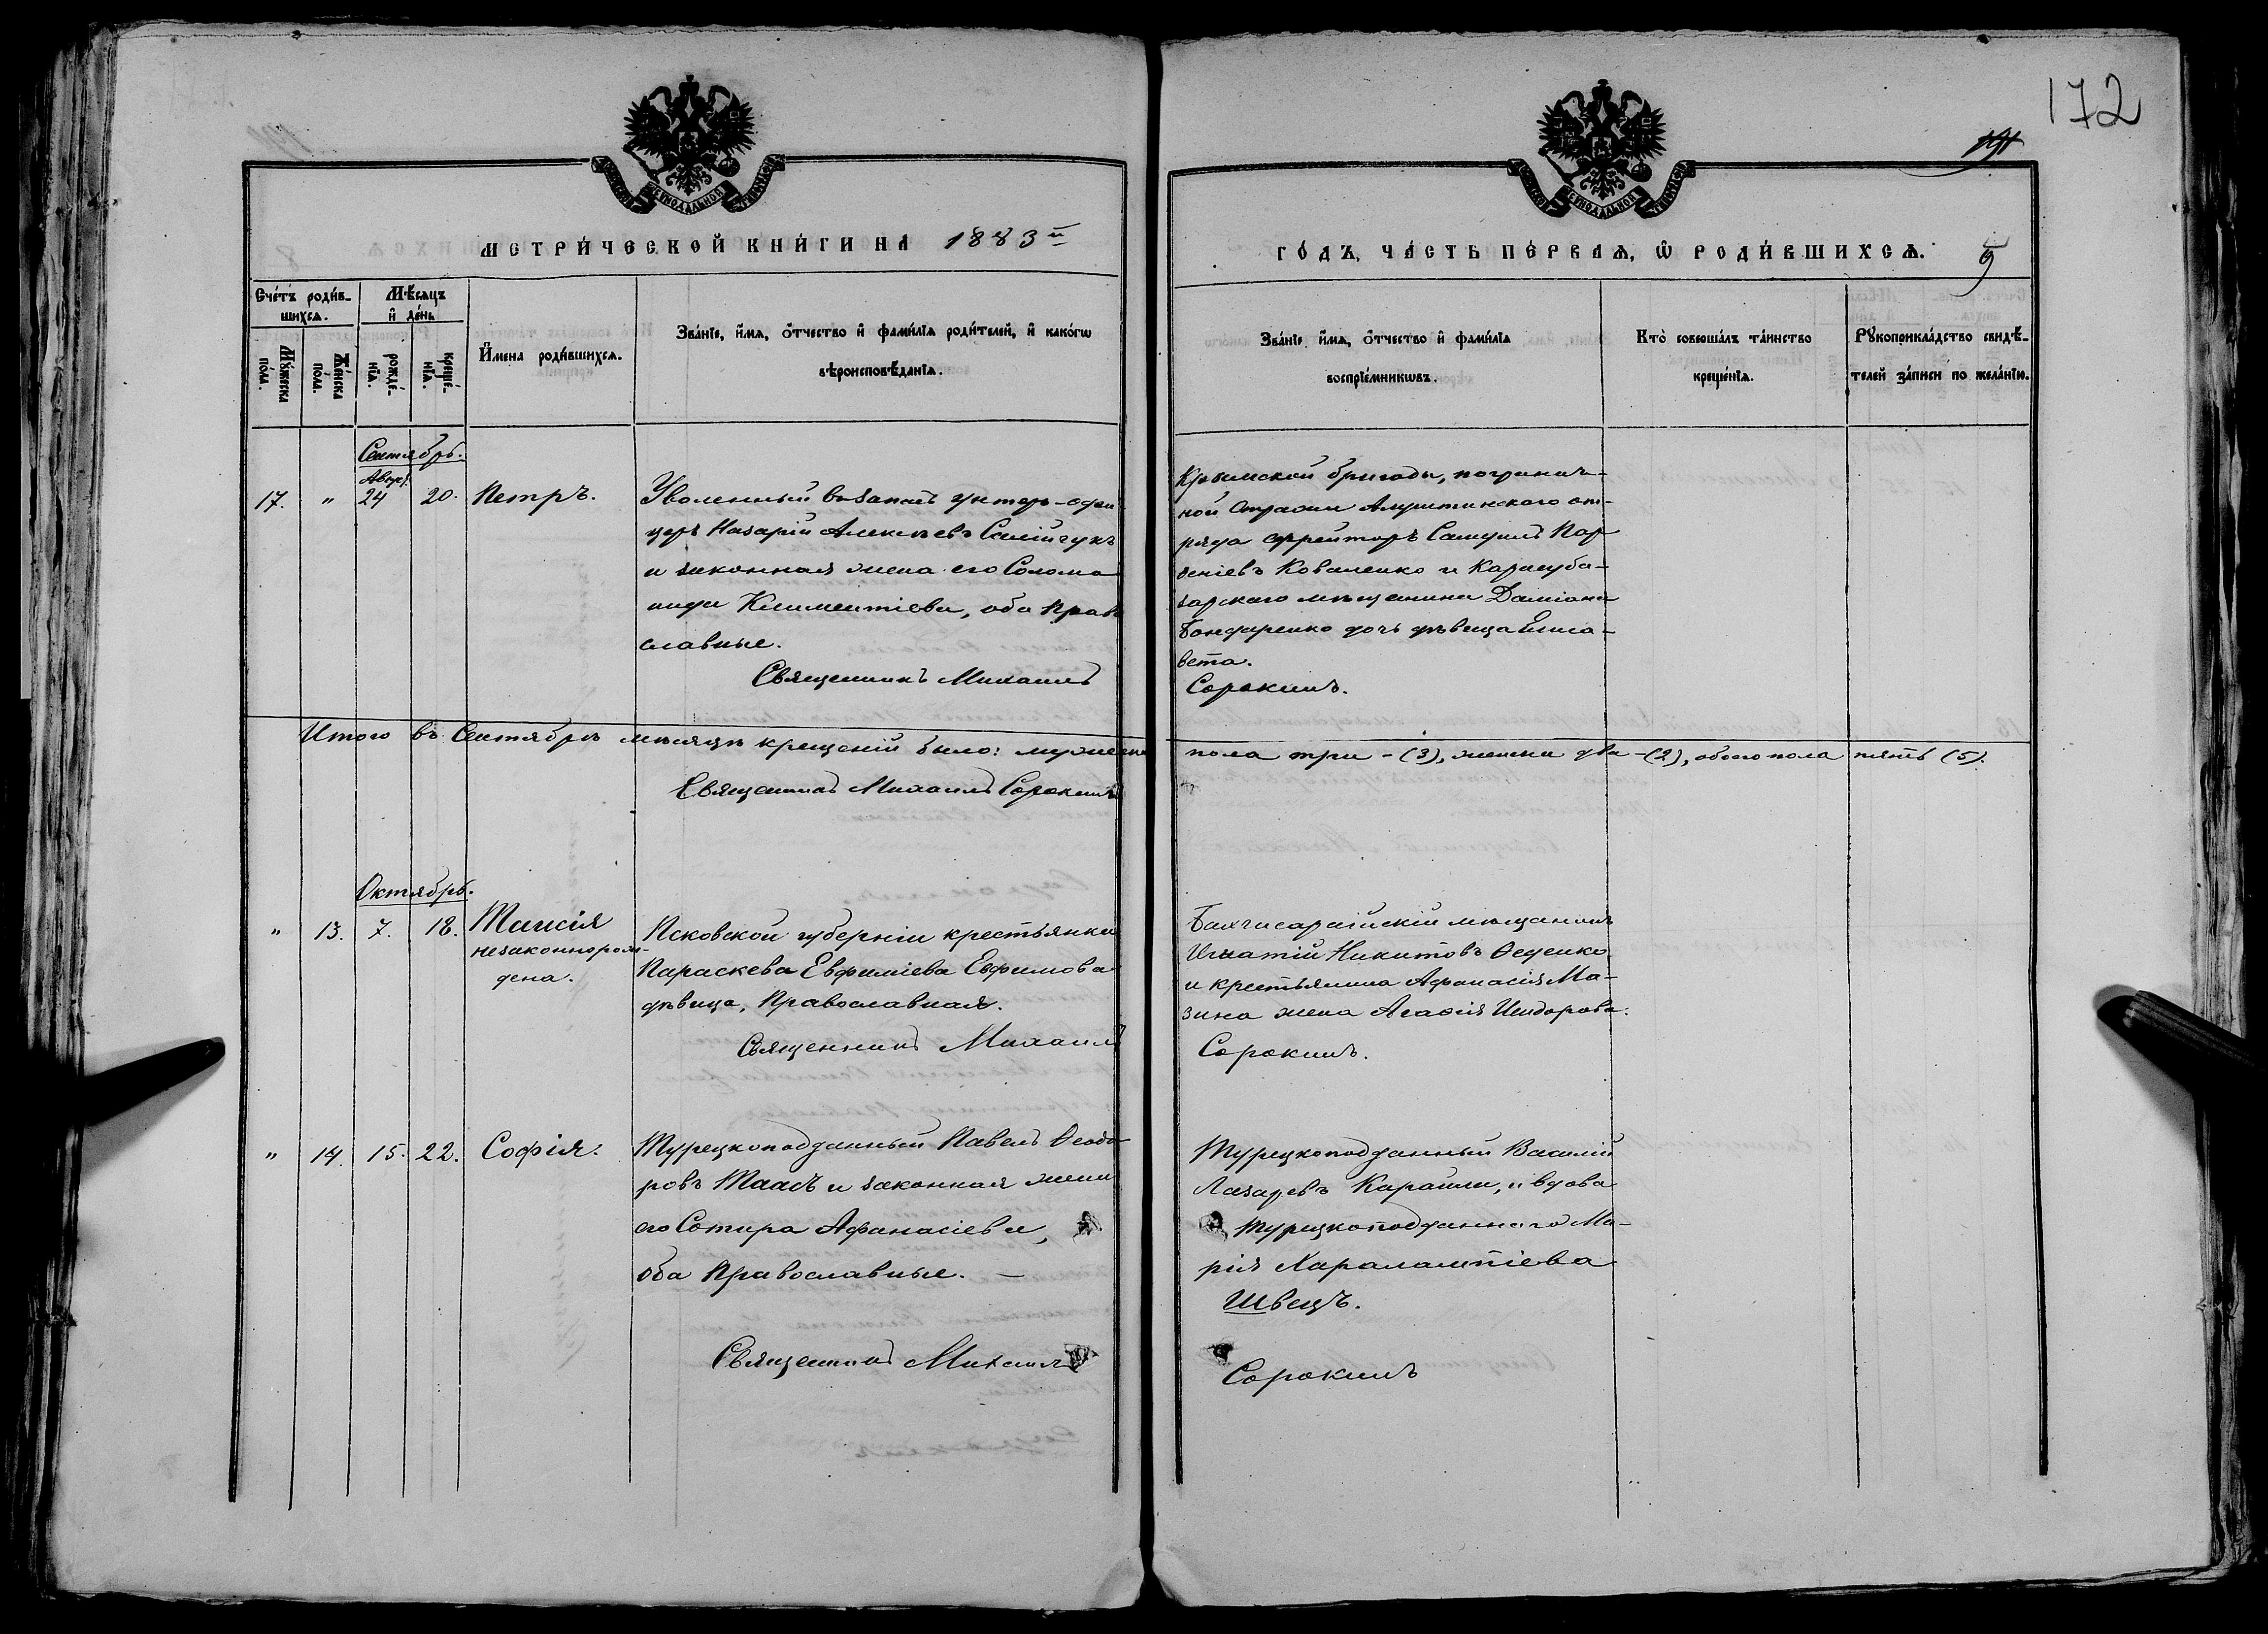 172
МЕТРИ́ЧЕСКОЙ КНИ́ГИ НА 1883й
ГО́ДЪ, ЧА́СТЬ ПЕ́РВАѦ, Ѡ҆ РОДИ́ВШИХСѦ.
9
Сче́тъ роди́в-
шихсѧ.
Мѣ́сѧцъ
и҆ де́нь
Мꙋ́жеска
по́ла.
Же́нска
по́ла.
рожде́-
нїѧ.
креще́-
нїѧ.
И҆мена роди́вшихсѧ.
Зва́нїе, и҆́мѧ, ѻ҆́тчество и҆ фами́лїѧ роди́телей, и҆ како́гѡ
вѣроисповѣ́данїѧ.
Зва́нїе, и҆́мѧ, ѻ҆́тчество и҆ фами́лїѧ
воспрїе́мникѡвъ.
Кто̀ соверша́лъ та́инство
креще́нїѧ.
Рꙋкоприкла́дство свидѣ́-
телей за́писи по жела́нїю.
Сентябрь.
Авг.
17. " 24 20. Петръ.
Уволенный въ запасъ унтеръ-офи
церъ Назарій Алексѣевъ
и законная жена его Соломо
нида Климентіева, оба Право
славные.
Священникъ Михаилъ
Крымской бригады, погранич-
ной Стражи Алуштинскаго от-
ряда ефрейторъ Самуилъ Пар
ѳеніевъ Коваленко и Карасуба-
зарскаго мѣщанина Даміана
Бондаренко дочь дѣвица Елиса-
вета.
Сорокинъ.
Итого въ Сентябрѣ мѣсяцѣ крещеній было: мужеска пола три - (3), женска два - (2), обоего пола пять (5).
Священникъ Михаилъ Сорокинъ
Октябрь.
" 13. 7. 18. Таисія
незаконнорож-
дена.
Псковской губерніи крестьянка
Параскева Евфиміева Ефимова
дѣвица, Православная.
Священникъ Михаилъ
Бахчисарайскій мѣщанинъ
Игнатій Никитовъ Ѳеденко
и крестьянина Афанасія Ма-
зина жена Агафія Исидорова.
Сорокинъ.
" 14. 15. 22. Софія.
Турецкоподданный Павелъ Ѳеодо
ровъ Таасъ и законная жена
его Сотира Афанасіева,
оба Православные. —
Священникъ Михаилъ
Турецкоподданный Василій
Лазаревъ Караили, и вдова
Турецкоподданнаго Ма-
рія Харалампіева
Швецъ.
Сорокинъ